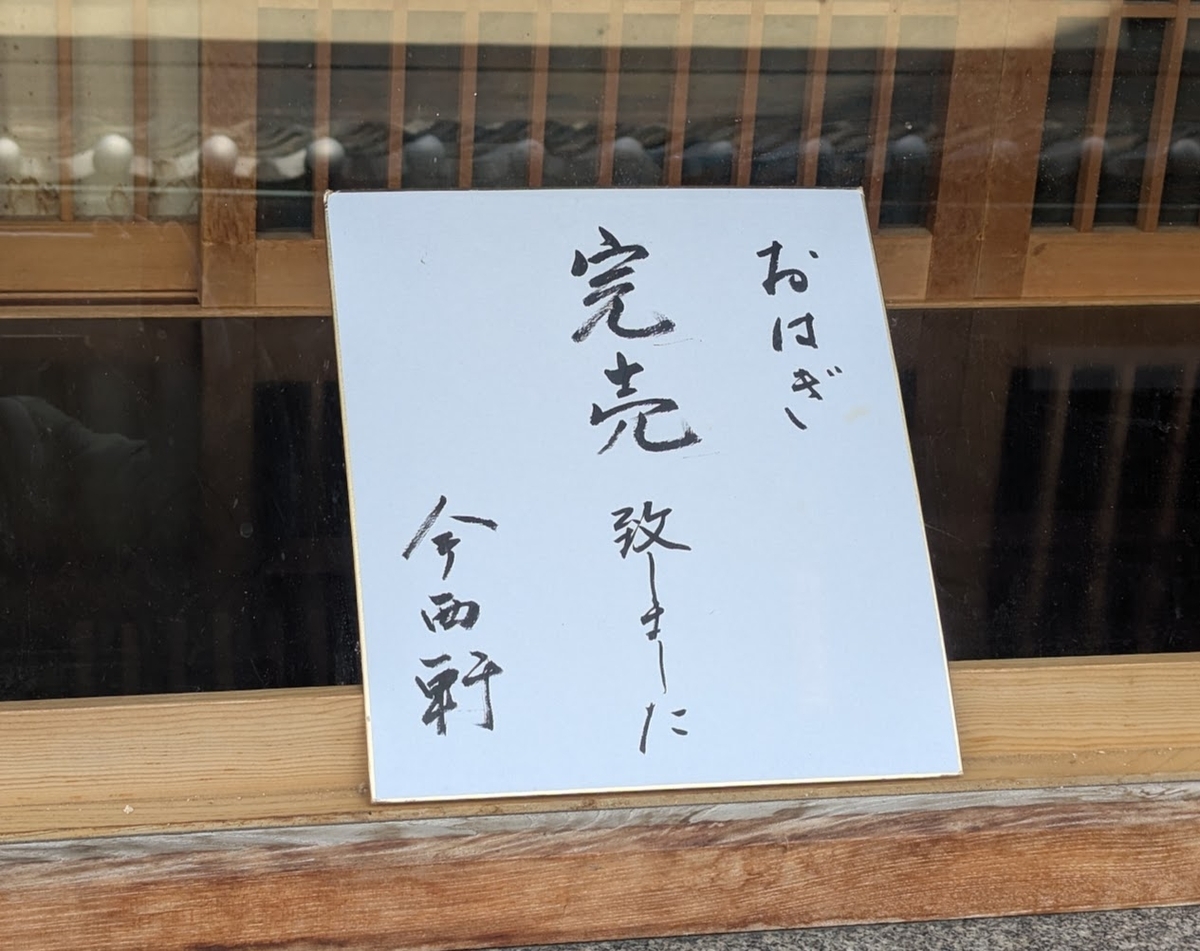 おはぎ
完売致しました
今西軒